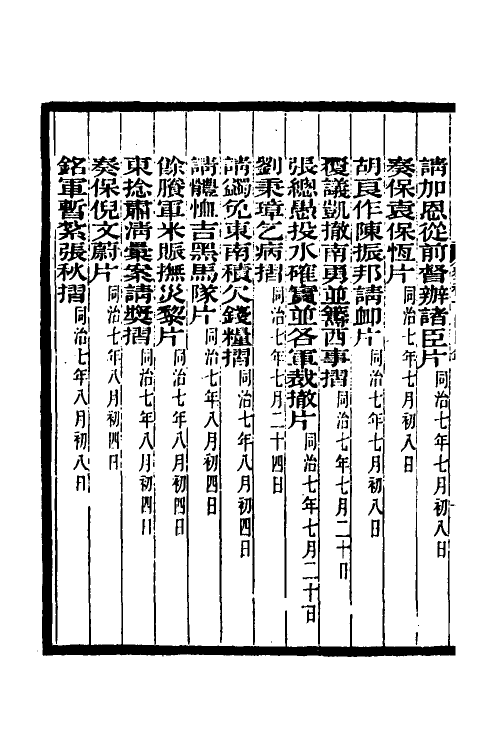 請加恩從前督辦諸臣片同治七年七月初八日
奏保袁保恆片同治七年七月初八日
胡良作陳振邦請卹片同治七年七月初八日
覆議凱撤南勇並籌西事摺同治七年七月二十日
張總愚投水確實並各軍裁撤片同治七年七月二十日
劉秉璋乞病摺同治七年七月二十四日
請蠲免東南積欠錢糧摺同治七年八月初四日
請體恤吉黑馬隊片同治七年八月初四日
餘賸軍米賑撫災黎片同治七年八月初四日
東捻肅清彙案請獎摺同治七年八月初四日
奏保倪文蔚片同治七年八月初四日
銘軍暫紮張秋摺同治七年八月初八日